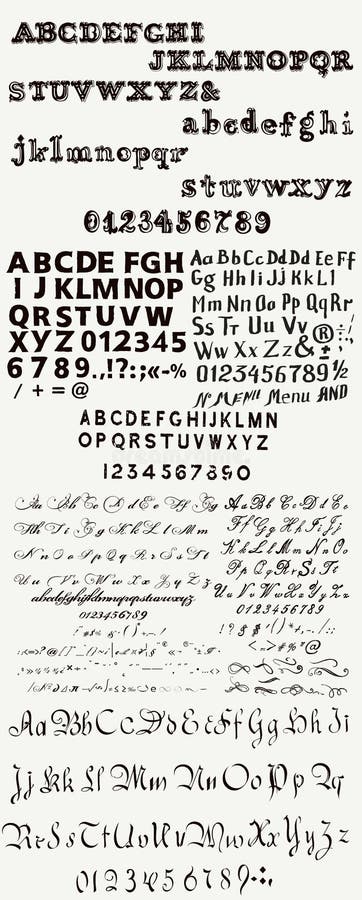 ABCDEFGHI
JKLMNOPQR
STUVWXYZ&
abcdefghi
jklmnopqr
stuvwxyz
0123456789
ABCDE FGH
I JKLMNOP
QRSTUVW
XYZ 012345
6789.,!?:;«-%
/ + = @
Aa Bb Cc Dd Ee Ff
Gg Hh Ii Jj Kk Ll
Mm Nn Oo Pp Qq Rr
Ss Tt Uu Vv ®÷!
Ww Xx Zz & ± ;
0123456789½
MENU Menu AND
ABCDEFGHIJKLMN
OPQRSTUVWXYZ
1234567890
Aa Bb Cc Dd Ee Ff
Gg Hh Ii Jj Kk Ll Mm
Nn Oo Pp Qq Rr Ss Tt
Uu Vv Ww Xx Yy Zz
abcdefghijklmnopqrstuvwxyz
0123456789
Aa Bb Cc Dd Ee
Ff Gg Hh Ii Jj
Kk Ll Mm Nn Oo
Pp Qq Rr Ss Tt
Uu Vv Ww Xx Yy Zz
0123456789
! ? § $ ( ) * + , - . / : ;
Aa Bb Cc Dd Ee Ff Gg Hh Ii
Jj Kk Ll Mm Nn Oo Pp Qq
Rr Ss Tt Uu Vv Ww Xx Yy Zz
0123456789